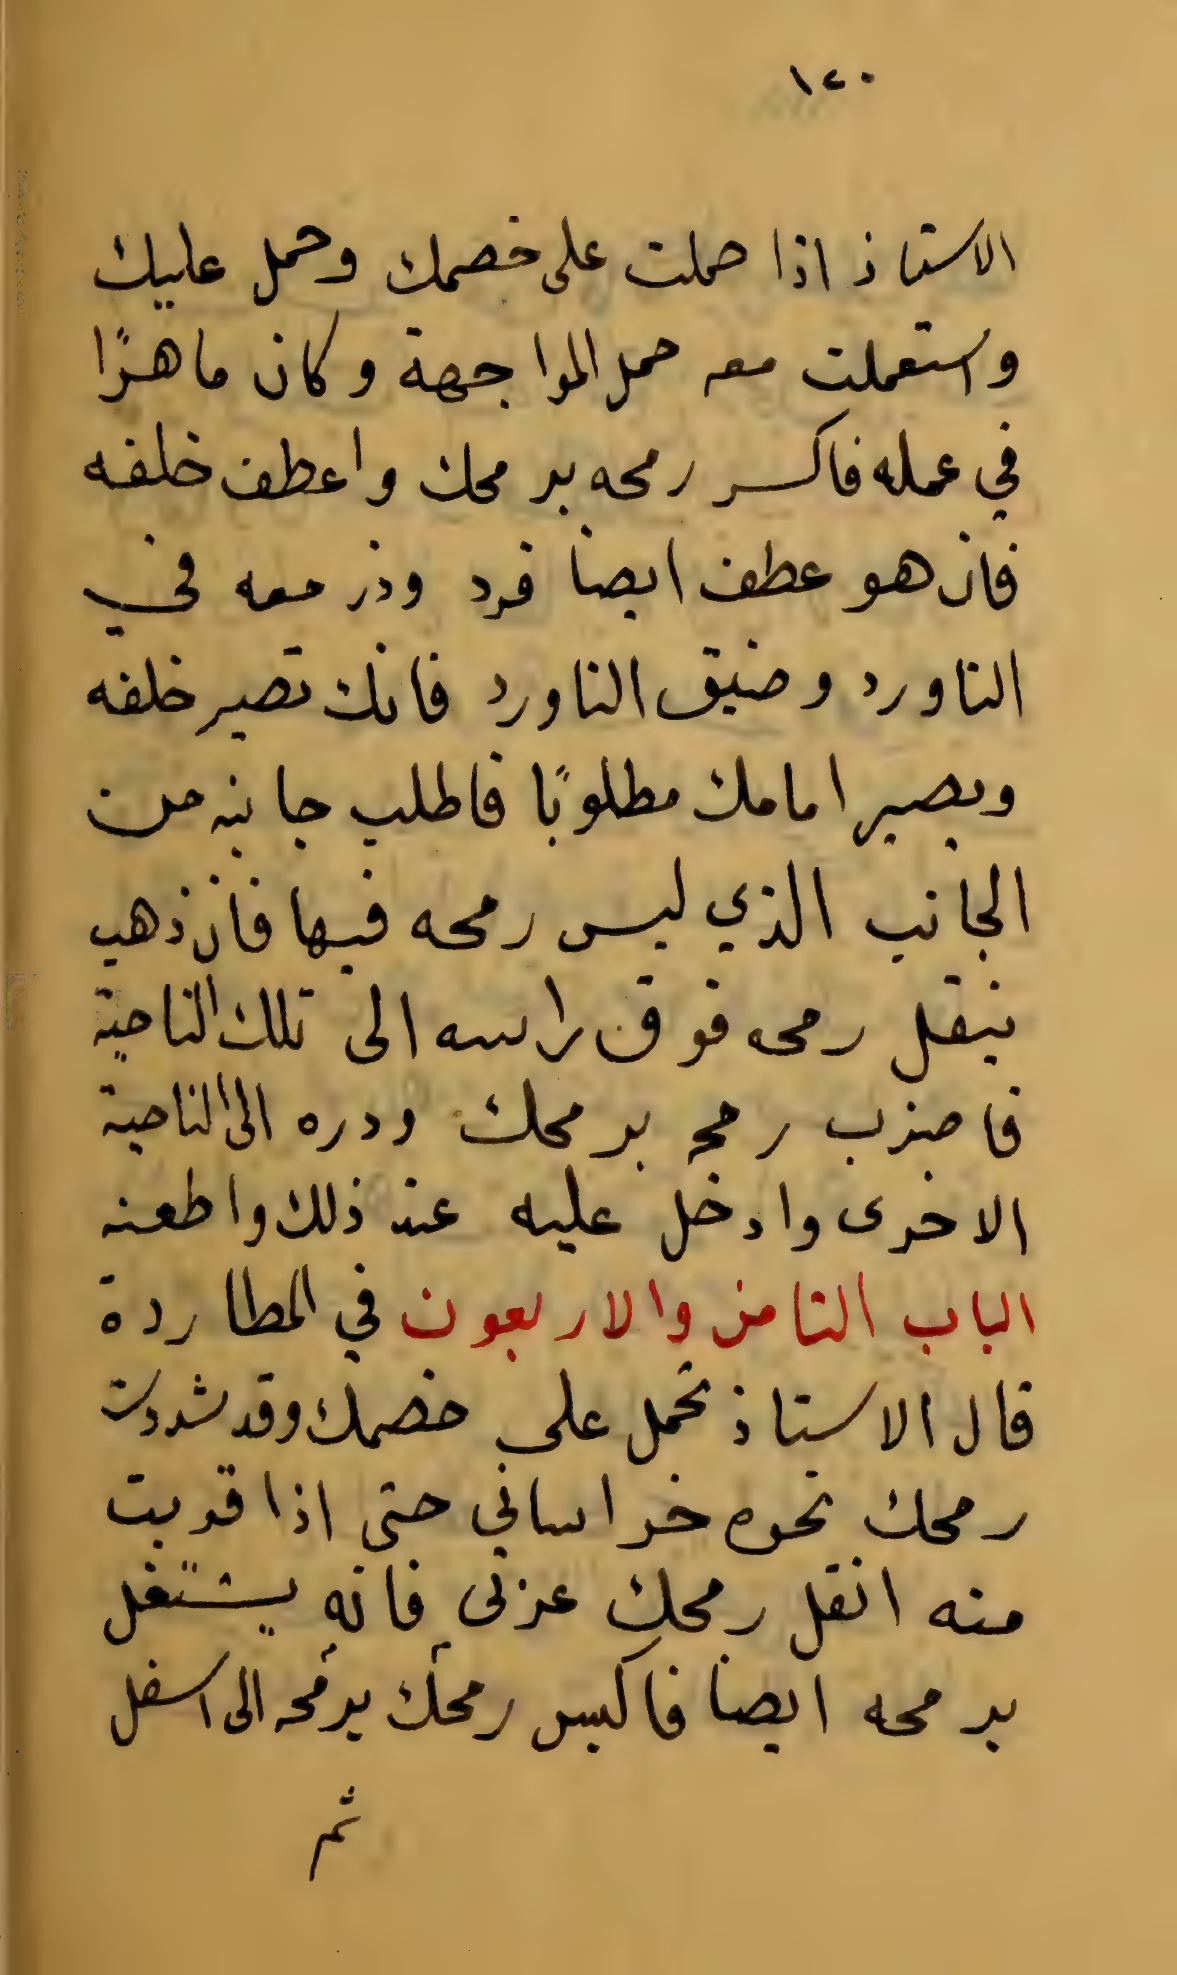 ١٢٠
الاستاذ اذا حملت على خصمك وحمل عليك
واستعملت معه حمل المواجهة وكان ماهرًا
في عمله فاكسر رمحه برمحك واعطف خلفه
فان هو عطف ايضا فرد وذر معه في
الناورد وضيق الناورد فانك تصير خلفه
ويصير امامك مطلوبًا فاطلب جانبه من
الجانب الذي ليس رمحه فيها فان ذهب
ينقل رمحه فوق راسه الى تلك الناحية
فاضرب رمحه برمحك ودره الى الناحية
الاخرى وادخل عليه عند ذلك واطعنه
الباب الثامن والاربعون في المطاردة
قال الاستاذ تحمل على خصمك وقد شددت
رمحك نحوه خراساني حتى اذا قربت
منه انقل رمحك عزني فانه يشتغل
برمحه ايضا فاكبس رمحك برمحه الى اسفل
ثم